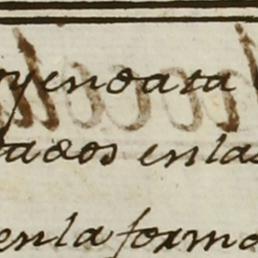 yendata
tados enlas
enla forma